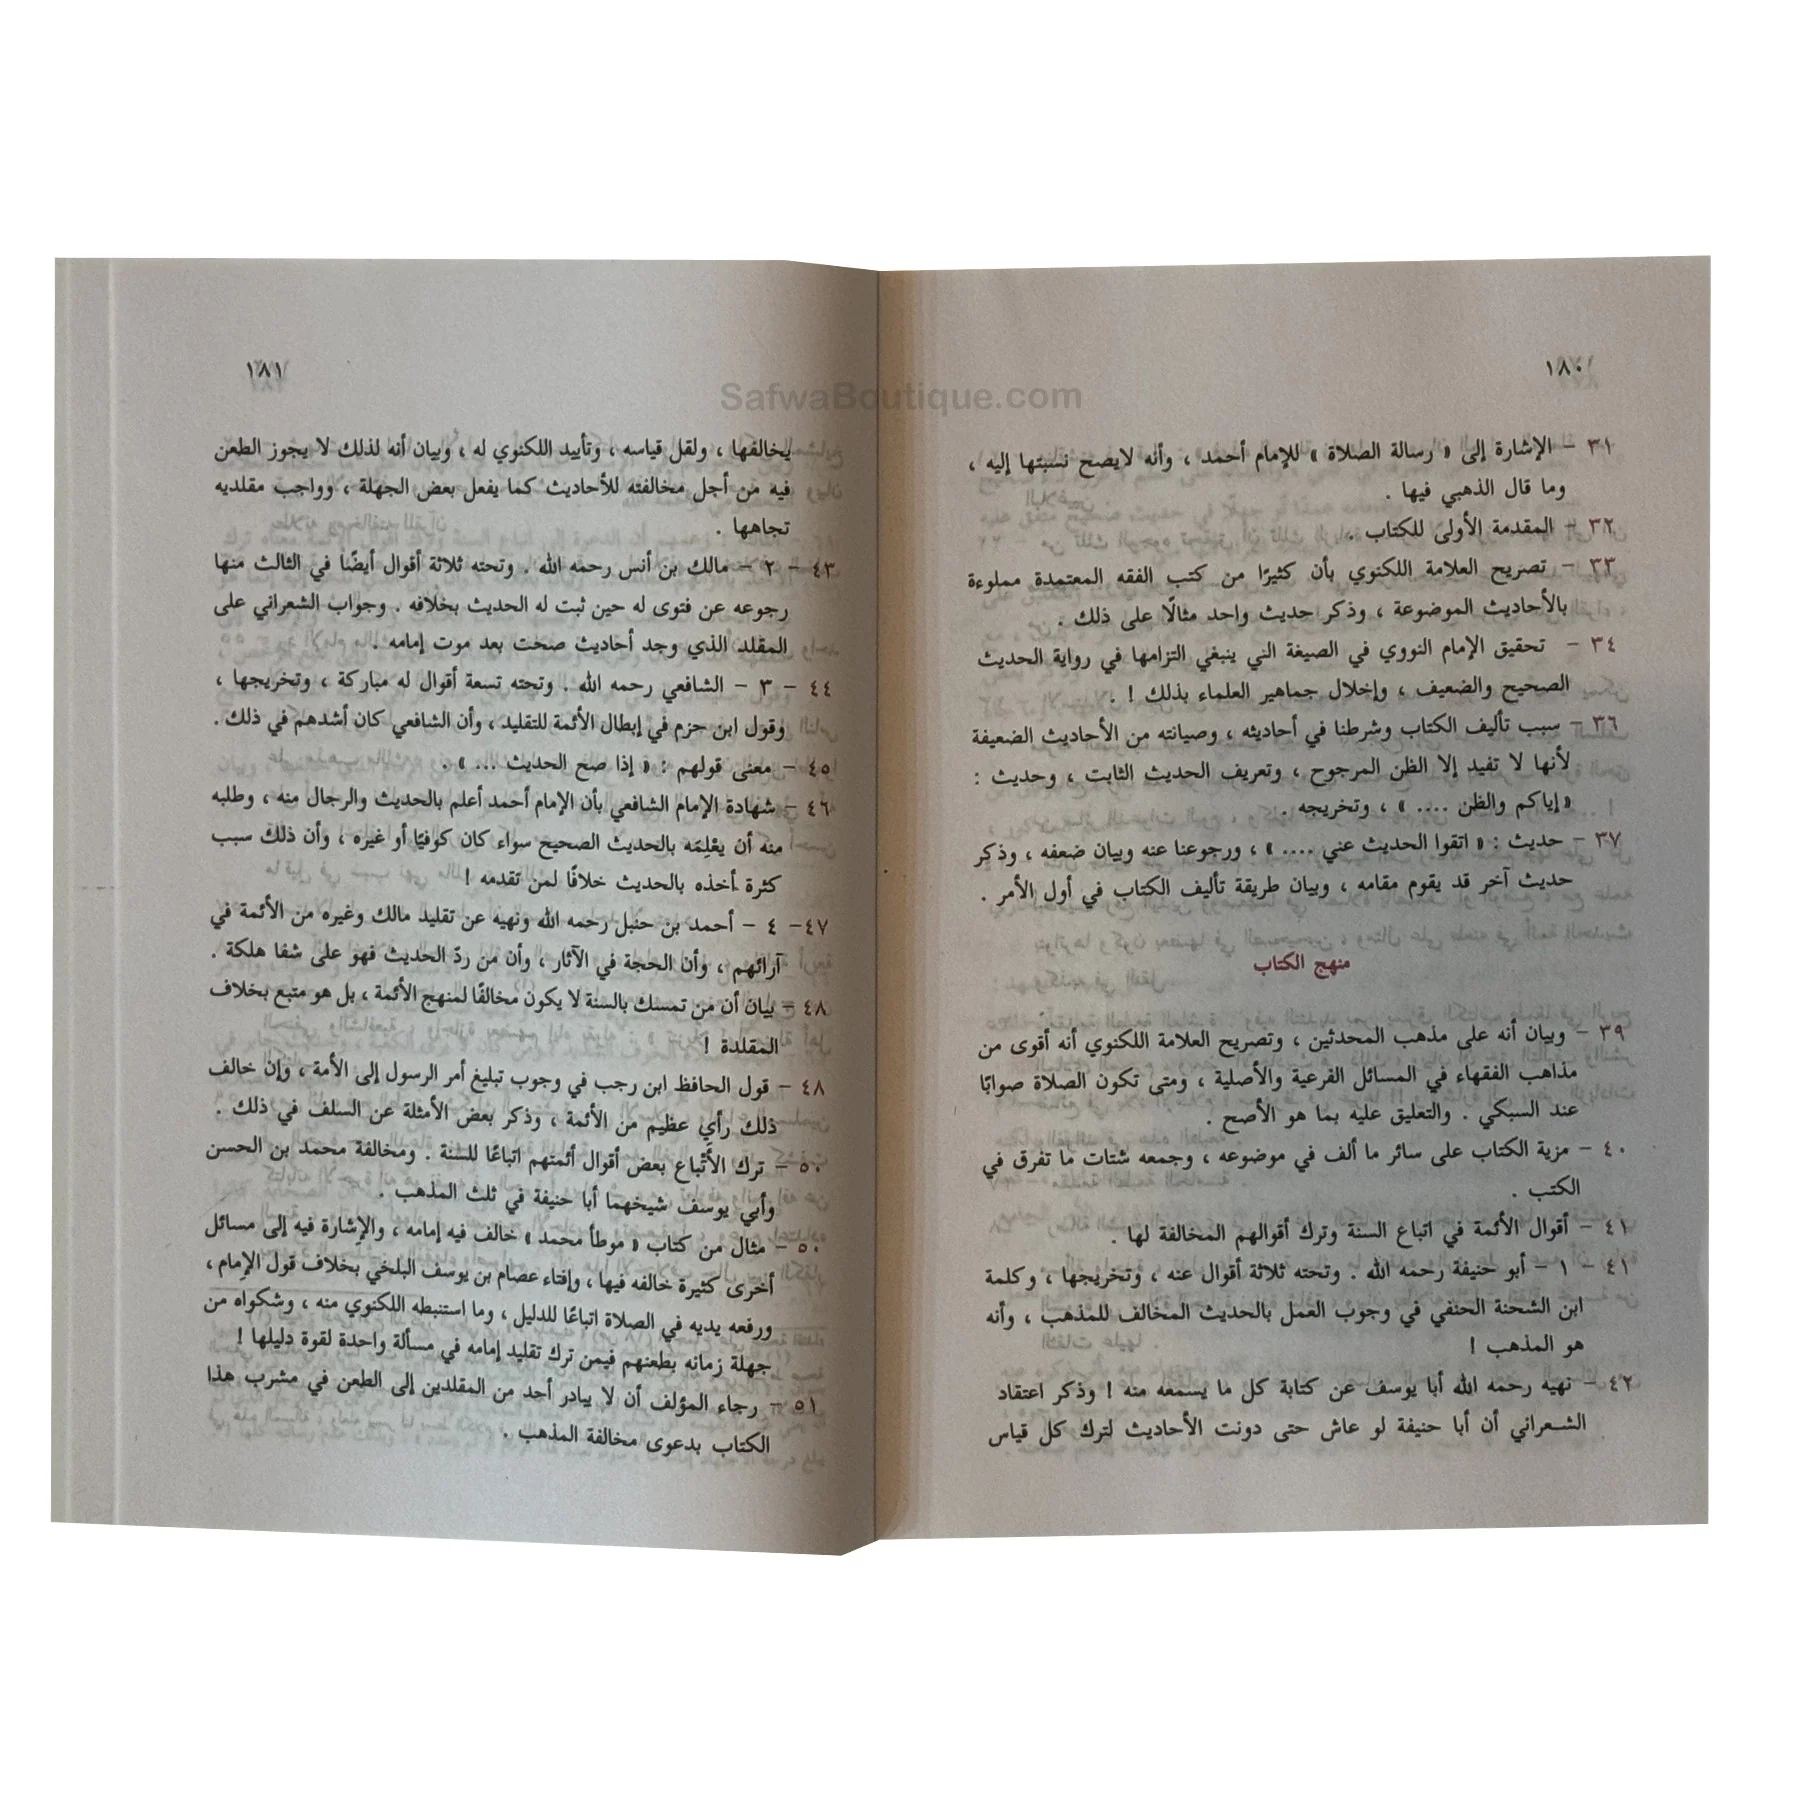 SafwaBoutique.com
١٨٠
٣١ – الإشارة إلى « رسالة الصلاة » للإمام أحمد ، وأنه لايصح نسبتها إليه ،
وما قال الذهبي فيها .
٣٢ – المقدمة الأولى للكتاب .
٣٣ – تصريح العلامة اللكنوي بأن كثيرًا من كتب الفقه المعتمدة مملوءة
بالأحاديث الموضوعة ، وذكر حديث واحد مثالًا على ذلك .
٣٤ – تحقيق الإمام النووي في الصيغة التي ينبغي التزامها في رواية الحديث
الصحيح والضعيف ، وإخلال جماهير العلماء بذلك ! .
٣٦ – سبب تأليف الكتاب وشرطنا في أحاديثه ، وصيانته من الأحاديث الضعيفة
لأنها لا تفيد إلا الظن المرجوح ، وتعريف الحديث الثابت ، وحديث :
« إياكم والظن .... » ، وتخريجه .
٣٧ – حديث : « اتقوا الحديث عني .... » ، ورجوعنا عنه وبيان ضعفه ، وذكر
حديث آخر قد يقوم مقامه ، وبيان طريقة تأليف الكتاب في أول الأمر .
منهج الكتاب
٣٩ – وبيان أنه على مذهب المحدثين ، وتصريح العلامة اللكنوي أنه أقوى من
مذاهب الفقهاء في المسائل الفرعية والأصلية ، ومتى تكون الصلاة صوابًا
عند السبكي . والتعليق عليه بما هو الأصح .
٤٠ – مزية الكتاب على سائر ما ألف في موضوعه ، وجمعه شتات ما تفرق في
الكتب .
٤١ – أقوال الأئمة في اتباع السنة وترك أقوالهم المخالفة لها .
٤١ – ١ – أبو حنيفة رحمه الله . وتحته ثلاثة أقوال عنه ، وتخريجها ، وكلمة
ابن الشحنة الحنفي في وجوب العمل بالحديث المخالف للمذهب ، وأنه
هو المذهب !
٤٢ – نهيه رحمه الله أبا يوسف عن كتابة كل ما يسمعه منه ! وذكر اعتقاد
الشعراني أن أبا حنيفة لو عاش حتى دونت الأحاديث لترك كل قياس
١٨١
يخالفها ، ولقل قياسه ، وتأييد اللكنوي له ، وبيان أنه لذلك لا يجوز الطعن
فيه من أجل مخالفته للأحاديث كما يفعل بعض الجهلة ، وواجب مقلديه
تجاهها .
٤٣ – ٢ – مالك بن أنس رحمه الله . وتحته ثلاثة أقوال أيضًا في الثالث منها
رجوعه عن فتوى له حين ثبت له الحديث بخلافه . وجواب الشعراني على
المقلد الذي وجد أحاديث صحت بعد موت إمامه .
٤٤ – ٣ – الشافعي رحمه الله . وتحته تسعة أقوال له مباركة ، وتخريجها ،
وقول ابن حزم في إبطال الأئمة للتقليد ، وأن الشافعي كان أشدهم في ذلك .
٤٥ – معنى قولهم : « إذا صح الحديث ... » .
٤٦ – شهادة الإمام الشافعي بأن الإمام أحمد أعلم بالحديث والرجال منه ، وطلبه
منه أن يعْلِمَه بالحديث الصحيح سواء كان كوفيًا أو غيره ، وأن ذلك سبب
كثرة أخذه بالحديث خلافًا لمن تقدمه !
٤٧– ٤ – أحمد بن حنبل رحمه الله ونهيه عن تقليد مالك وغيره من الأئمة في
آرائهم ، وأن الحجة في الآثار ، وأن من ردّ الحديث فهو على شفا هلكة .
٤٨ – بيان أن من تمسك بالسنة لا يكون مخالفًا لمنهج الأئمة ، بل هو متبع بخلاف
المقلدة !
٤٨ – قول الحافظ ابن رجب في وجوب تبليغ أمر الرسول إلى الأمة ، وإن خالف
ذلك رأي عظيم من الأئمة ، وذكر بعض الأمثلة عن السلف في ذلك .
٥٠ – ترك الأتْباع بعض أقوال أئمتهم اتباعًا للسنة . ومخالفة محمد بن الحسن
وأبي يوسف شيخهما أبا حنيفة في ثلث المذهب .
٥٠ – مثال من كتاب « موطأ محمد » خالف فيه إمامه ، والإشارة فيه إلى مسائل
أخرى كثيرة خالفه فيها ، وإفتاء عصام بن يوسف البلخي بخلاف قول الإمام ،
ورفعه يديه في الصلاة اتباعًا للدليل ، وما استنبطه اللكنوي منه ، وشكواه من
جهلة زمانه بطعنهم فيمن ترك تقليد إمامه في مسألة واحدة لقوة دليلها !
٥١ – رجاء المؤلف أن لا يبادر أحد من المقلدين إلى الطعن في مشرب هذا
الكتاب بدعوى مخالفة المذهب .